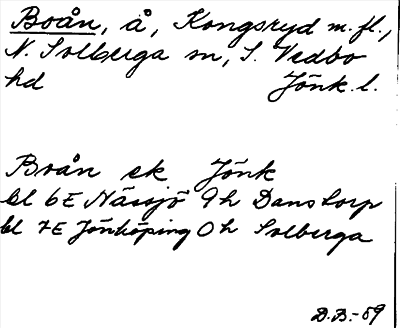 Boån, å, Kongsryd m.fl.,
N. Solberga sn, S. Vedbo
hd Jönk. l.
Boån ek Jönk
bl 6E Nässjö 9h Danstorp
bl 7E Jönköping 0h Solberga
D.B.-59